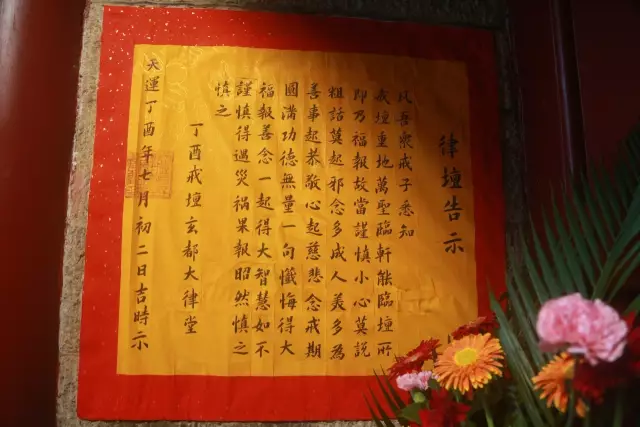 律壇告示
以吾衆戒子悉知
戒壇重地萬聖臨軒能臨壇所
即乃福報故當謹慎小心莫説
粗話莫起邪念多成人美多為
善事起恭敬心起慈悲念戒期
圆滿功德無量一句懺悔得大
福報善念一起得大智慧如不
謹慎得遇災禍果報昭然慎之
慎之
丁酉戒壇玄都大律堂
天運丁酉年七月初二日吉時示